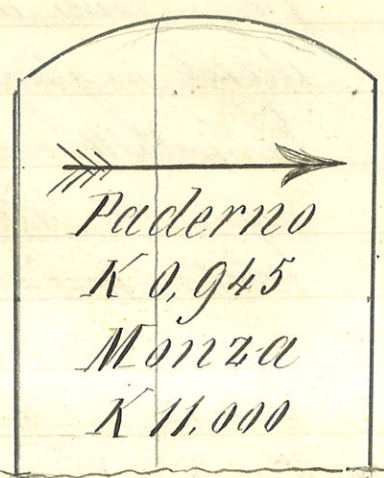 Paderno
K 0,945
Monza
K 11,000